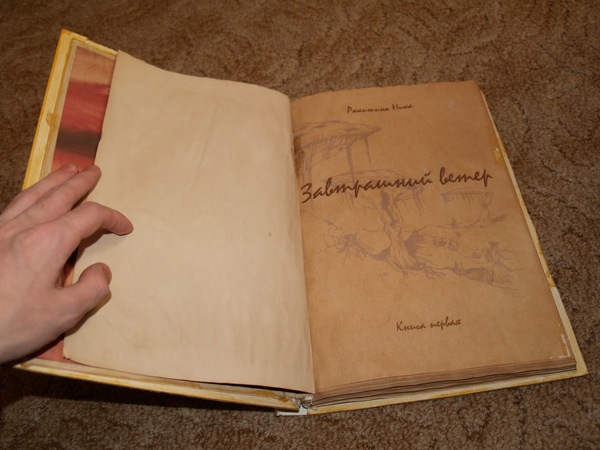 Ракитина Ника
Завтрашний ветер
Книга первая